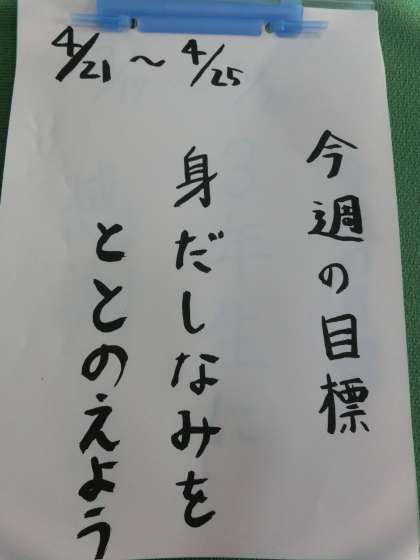 4/21 〜 4/25
今週の目標
身だしなみを
ととのえよう